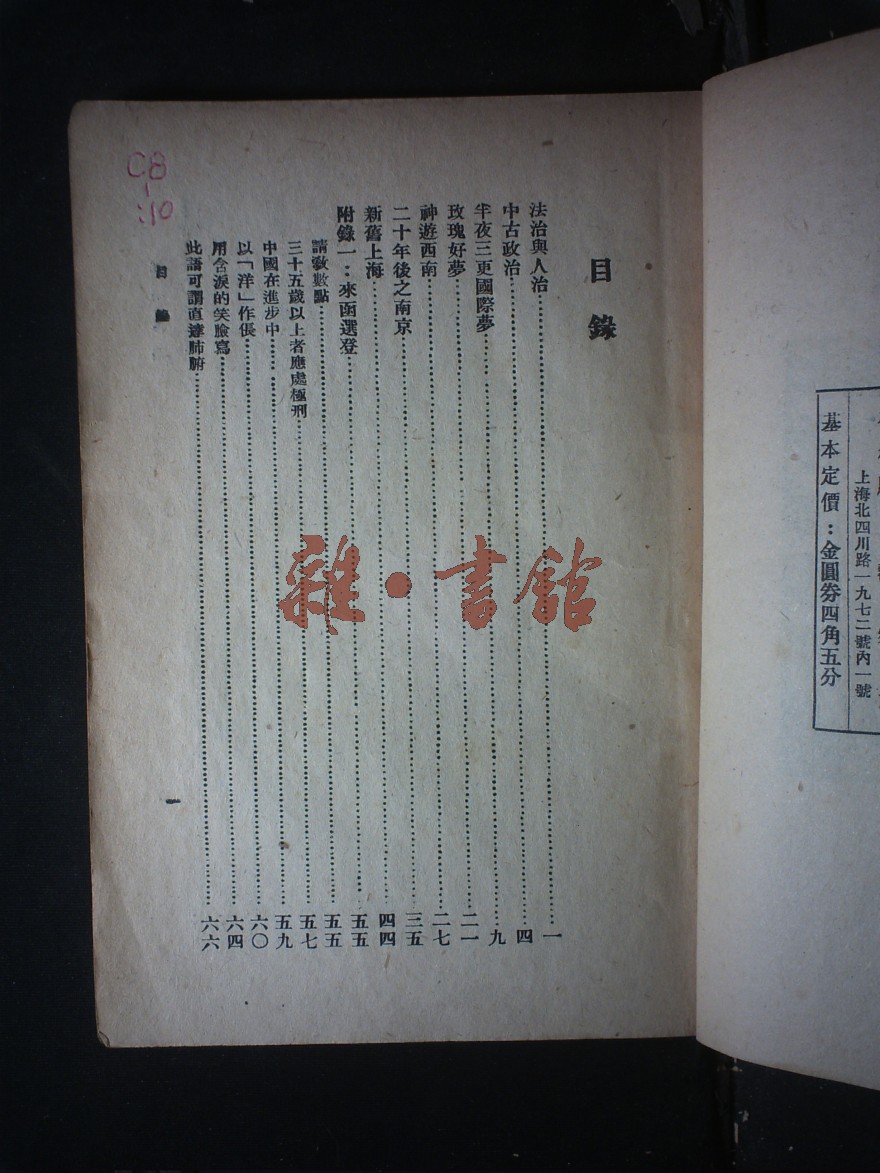 基本定價：金圓券四角五分
上海北四川路一九七二號內一號
目錄
法治與人治 一
中古政治 四
半夜三更國際夢 九
玫瑰好夢 二一
神遊西南 二七
二十年後之南京 三五
新舊上海 四四
附錄一：來函選登 五五
請教數點 五五
三十五歲以上者應處極刑 五七
中國在進步中 五九
以「洋」作倀 六〇
用含淚的笑臉寫 六四
此語可謂直達肺腑 六六
目錄 一
C8
10
雜·書館